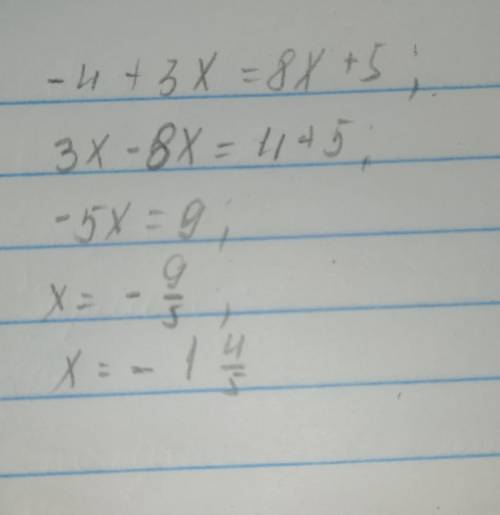 -4 + 3x = 8x + 5;
3x - 8x = 4 + 5;
-5x = 9;
x = - 9/5;
x = - 1 4/5